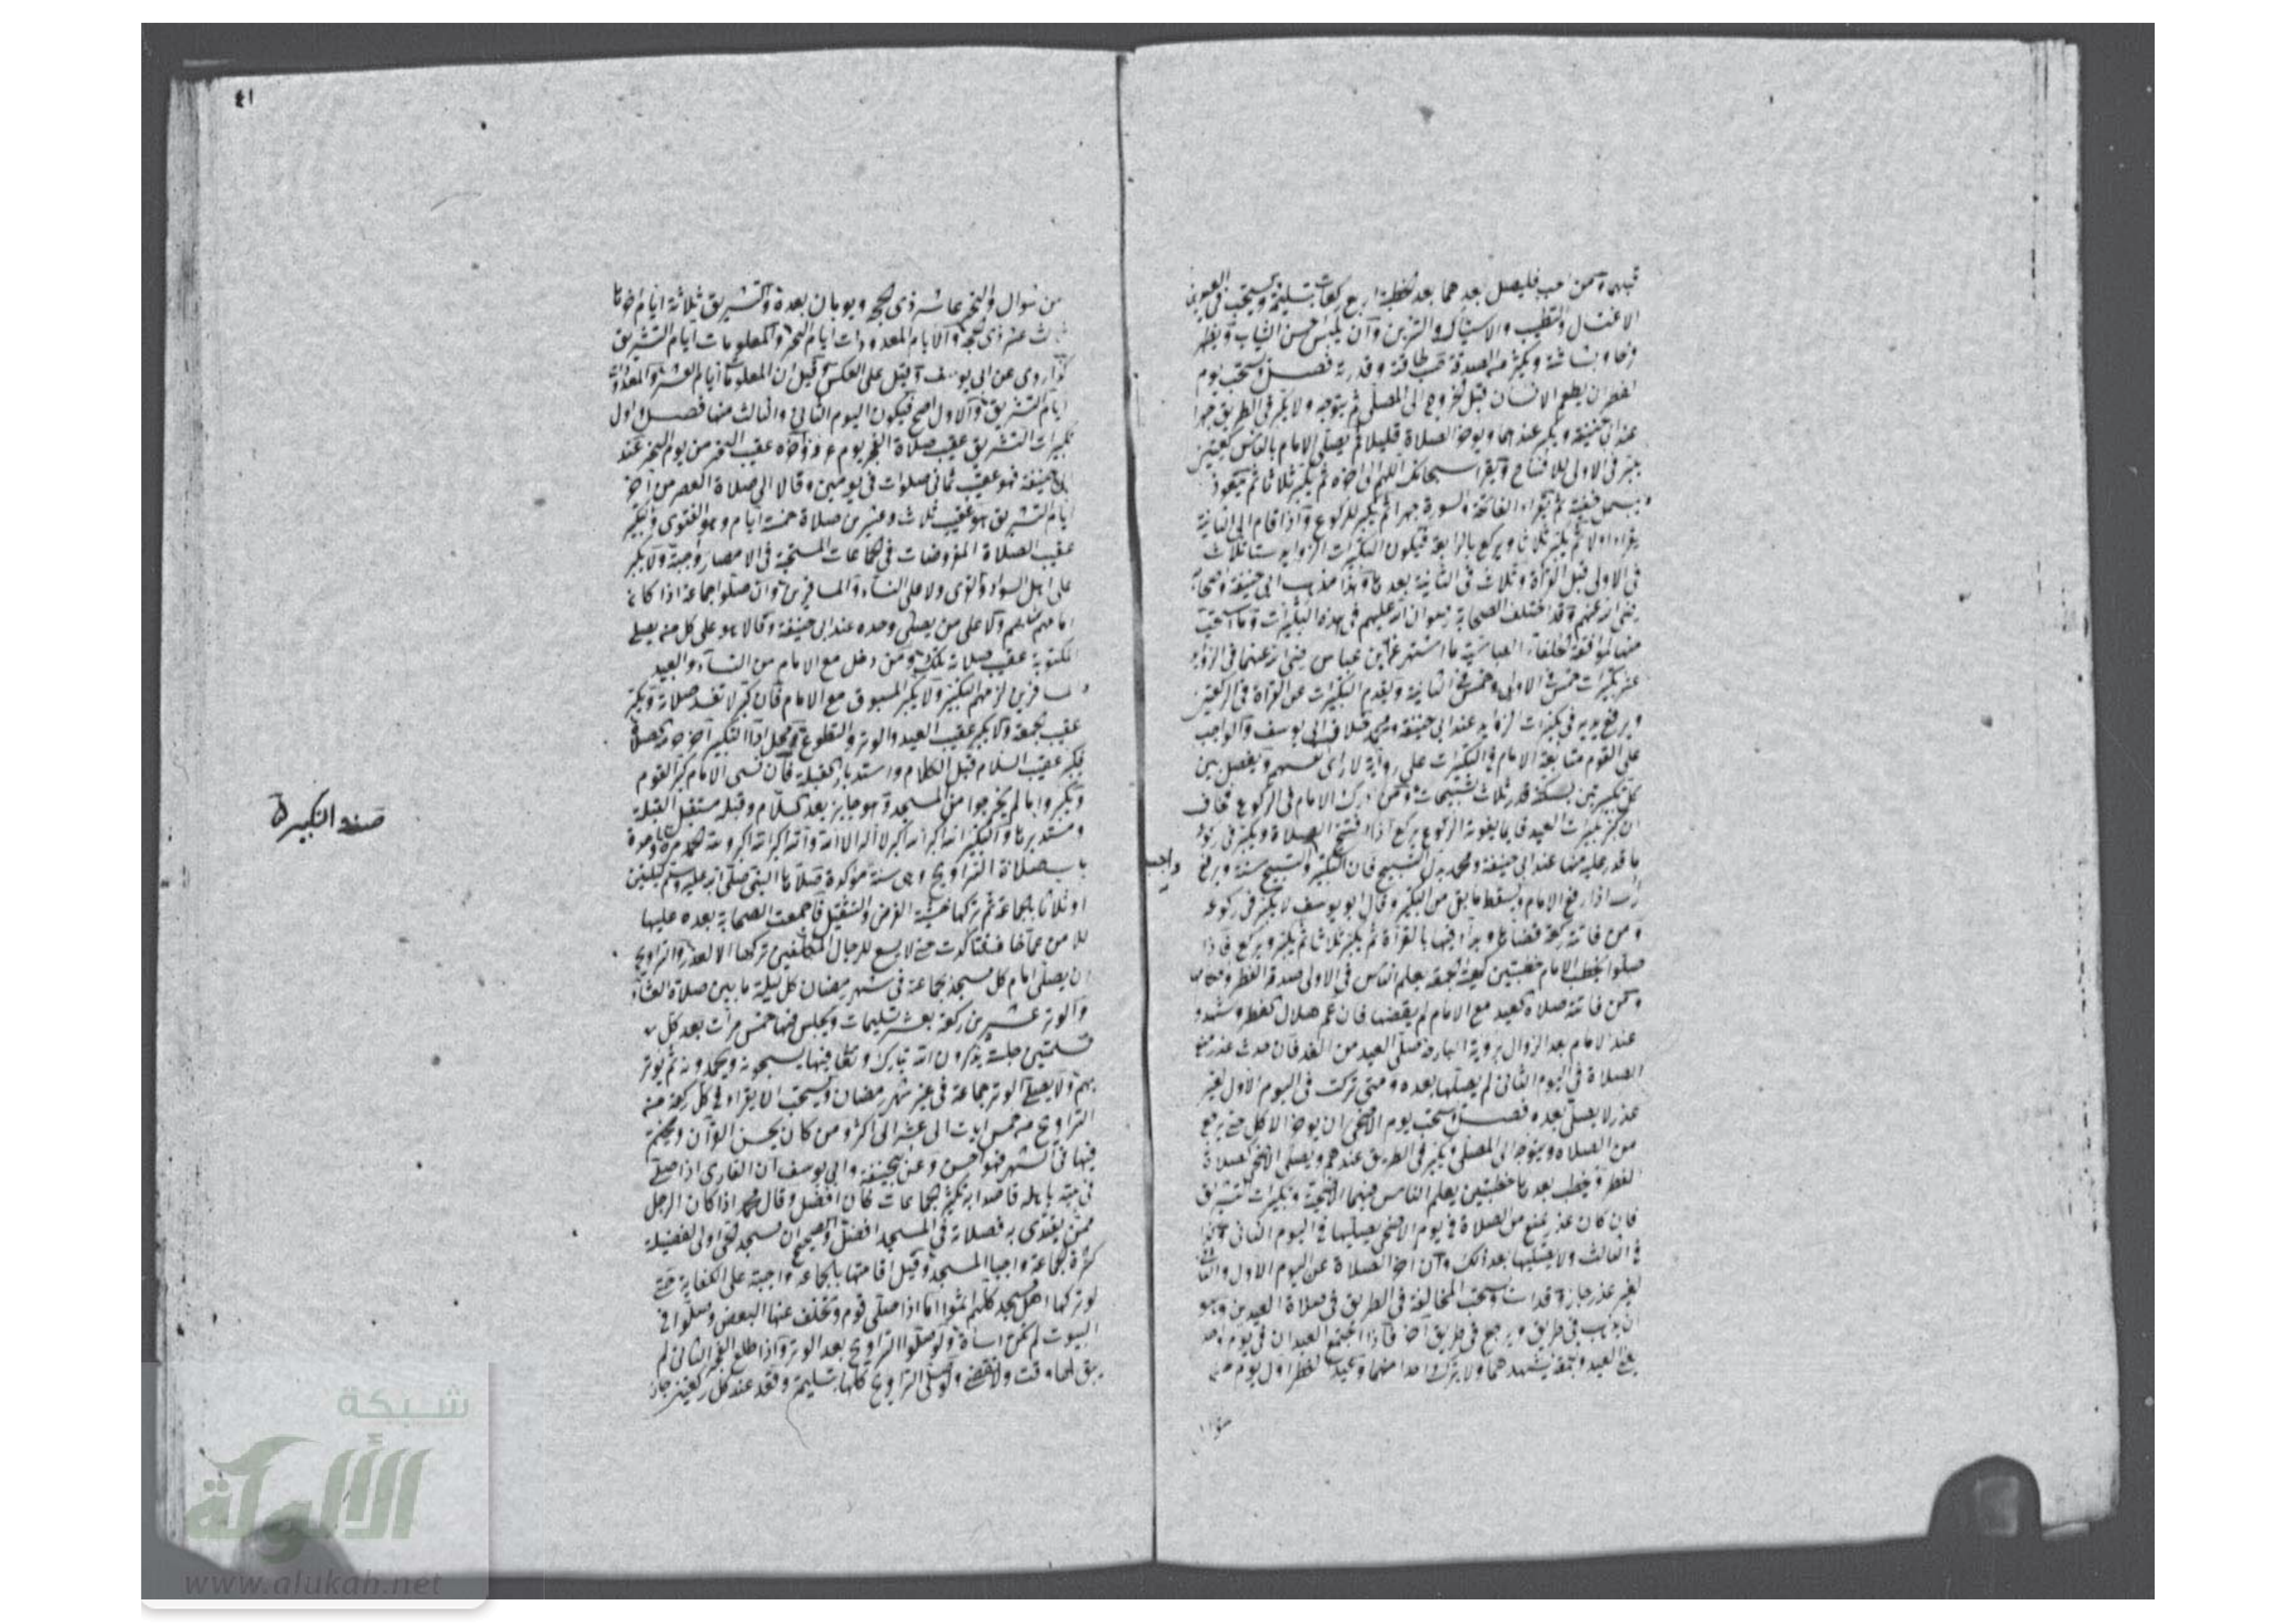 قبلهما ومن احب فليصل بعدهما بعد الخطبة اربع ركعات بتسليمة ويستحب في العيدين
الاغتسال والتطيب والاستياك والتزين وان يلبس احسن الثياب ويظهر
فرحا وبشاشة ويكثر من الصدقة حسب طاقته وقدرته فصل ويستحب يوم
الفطر ان يطعم الانسان قبل الخروج الى المصلى ثم يتوجه ولا يكبر في الطريق جهرا
عند ابي حنيفة ويكبر عندهما ويؤخر الصلاة قليلا ثم يصلي الامام بالناس ركعتين
يكبر في الاولى للافتتاح ويقرا سبحانك اللهم الى اخره ثم يكبر ثلاثا ثم يتعوذ
ويسمل خفية ثم يقراء الفاتحة والسورة جهرا ثم يكبر للركوع واذا قام الى الثانية
يقراء اولا ثم يكبر ثلاثا ويركع بالرابعة فيكون التكبيرات الزوايد ستا ثلاث
في الاولى قبل القراة وثلاث في الثانية بعدها وهذا مذهب ابي حنيفة واصحابه
رضي الله عنهم وقد اختلف الصحابة رضوان الله عليهم في هذه التكبيرات
منها لموافقة الخلفاء العباسية ما اشتهر عن ابن عباس رضي الله عنهما في الزوايد
عشر تكبيرات خمس في الاولى وخمس في الثانية ويقدم التكبيرات على القراة في الركعتين
ويرفع يديه في تكبيرات الزوايد عند ابي حنيفة ومحمد خلاف ابي يوسف والواجب
على القوم متابعة الامام في التكبيرات على رواية لا راى نفسهم ويفصل بين
كل تكبيرتين بسكتة قدر ثلاث تسبيحات ومن ادرك الامام في الركوع فخاف
ان كبر تكبيرات العيد قايما يفوته الركوع يركع اذا افتتح الصلاة ويكبر في ركوعه
ما قدر عليه منها عند ابي حنيفة ومحمد بدل التسبيح فان التكبير والتسبيح سنة ويرفع
واجب
راسه اذا رفع الامام ويسقط ما بقي من التكبير وقال ابو يوسف لا يكبر في ركوعه
ومن فاتته ركعة قضاها وبدأ فيها بالقراة ثم يكبر ثلاثا ثم يكبر ويركع فاذا
صلوا يخطب الامام خطبتين كهيئة الجمعة يعلم الناس في الاولى صدقة الفطر
ومن فاتته صلاة العيد مع الامام لم يقضها فان غم هلال الفطر وشهدوا
عند الامام بعد الزوال برؤية البارحة صلى العيد من الغد فان حدث عذر منع
الصلاة في اليوم الثاني لم يصلها بعده ومتى تركت في اليوم الاول لغير
عذر لا يصلى بعده فصل ويستحب يوم الاضحى ان يؤخر الاكل حتى يرجع
من الصلاة ويتوجه الى المصلى يكبر في الطريق عندهم ويصلي الاضحى كصلاة
الفطر ويخطب بعدها خطبتين يعلم الناس فيهما الاضحية وتكبيرات التشريق
فان كان عذر يمنع من الصلاة في يوم الاضحى يصليها في اليوم الثاني وكذا
في الثالث ولا يصليها بعد ذلك وان اخر الصلاة عن اليوم الاول والثاني
لغير عذر جاز وقد اساء ويستحب المخالفة في الطريق في صلاة العيدين وهو
ان يذهب في طريق ويرجع في طريق آخر فاذا اجتمع العيدان في يوم واحد
يعني العيد والجمعة يشهدهما ولا يترك احدا منهما وعيد الفطر اول يوم من
شوال
٤١
من شوال والنحر عاشر ذي الحجة ويومان بعده والتشريق ثلاثة ايام اخرها
ثالث عشر ذي الحجة والايام المعدودات ايام النحر والمعلومات ايام التشريق
كذا روي عن ابي يوسف وقيل على العكس وقيل ان المعلومات ايام العشر والمعدودات
ايام التشريق والاول اصح فيكون اليوم الثاني والثالث منها فصل واول
تكبيرات التشريق عقيب صلاة الفجر يوم عرفة وآخره عقيب العصر من يوم النحر عند
ابي حنيفة فهو عقيب ثماني صلوات في يومين وقالا الى صلاة العصر من آخر
ايام التشريق هو عقيب ثلاث وعشرين صلاة خمسة ايام وهو الفتوى والتكبير
عقيب الصلاة المفروضات في الجماعات المستحبة في الامصار واجبة ولا يكبر
على اهل السواد والقرى ولا على النساء والمسافرين وان صلوا جماعة اذا كان
امامهم مثلهم ولا على من يصلي وحده عند ابي حنيفة وقالا هو على كل من يصلي
المكتوبة عقيب صلاته تلك ومن دخل مع الامام من النساء والعبيد
والمسافرين لزمهم التكبير ولا يكبر المسبوق مع الامام فان كبر لا تفسد صلاته ويكبر
عقيب الجمعة ولا يكبر عقيب العيد والوتر والتطوع ومحل اداء التكبير آخر جزء الصلاة
فيكبر عقيب السلام قبل الكلام واستدبار القبلة فان نسى الامام كبر القوم
ويكبروا ما لم يخرجوا من المسجد وهو جايز بعد السلام وقبله مستقبل القبلة
ومستدبرها والتكبير الله اكبر الله اكبر لا اله الا الله والله اكبر الله اكبر ولله الحمد مرة واحدة
صفة التكبيرة
باب صلاة التراويح وهي سنة مؤكدة صلاها النبي صلى الله عليه وسلم ليلتين
او ثلاثا بالجماعة ثم تركها خشية الفرض والتثقيل فاجمعت الصحابة بعده عليها
للامن مما خاف فتأكدت حتى لا يسع للرجال المكلفين تركها الا لعذر والتراويح
ان يصلى امام كل مسجد بجماعة في شهر رمضان كل ليلة ما بين صلاة العشاء
والوتر عشرين ركعة بعشر تسليمات ويجلس فيها خمس مرات بعد كل
تسليمتين جلسة يذكرون الله تبارك وتعالى فيها يسبحونه ويحمدونه ثم يوتر
بهم ولا يصلى الوتر جماعة في غير شهر رمضان ويستحب ان يقراء في كل ركعة من
التراويح من خمس ايات الى عشر الى اكثر ومن كان يحسن القرآن ويختمه
فيها في الشهر فهو احسن وعن ابي حنيفة وابي يوسف ان القارى اذا صلى
في بيته باهله قاصدا به تكثير الجماعات كان افضل وقال محمد اذا كان الرجل
ممن يقتدى به فصلاته في المسجد افضل والصحيح ان مسجد الحي اولى لفضيلة
كثرة الجماعة واحياء المسجد وقيل اقامتها بالجماعة واجبة على الكفاية حتى
لو تركها اهل مسجد كلهم اثموا اما اذا صلى قوم وتخلف عنها البعض وصلوا في
البيوت لم يكن اساءة ولو صلوا التراويح بعد الوتر واذا طلع الفجر الثاني لم
يبق لها وقت ولا تقضى ولو صلى التراويح كلها بتسليمة وقعد عند كل ركعتين جاز
شبكة
الألوكة
www.alukah.net